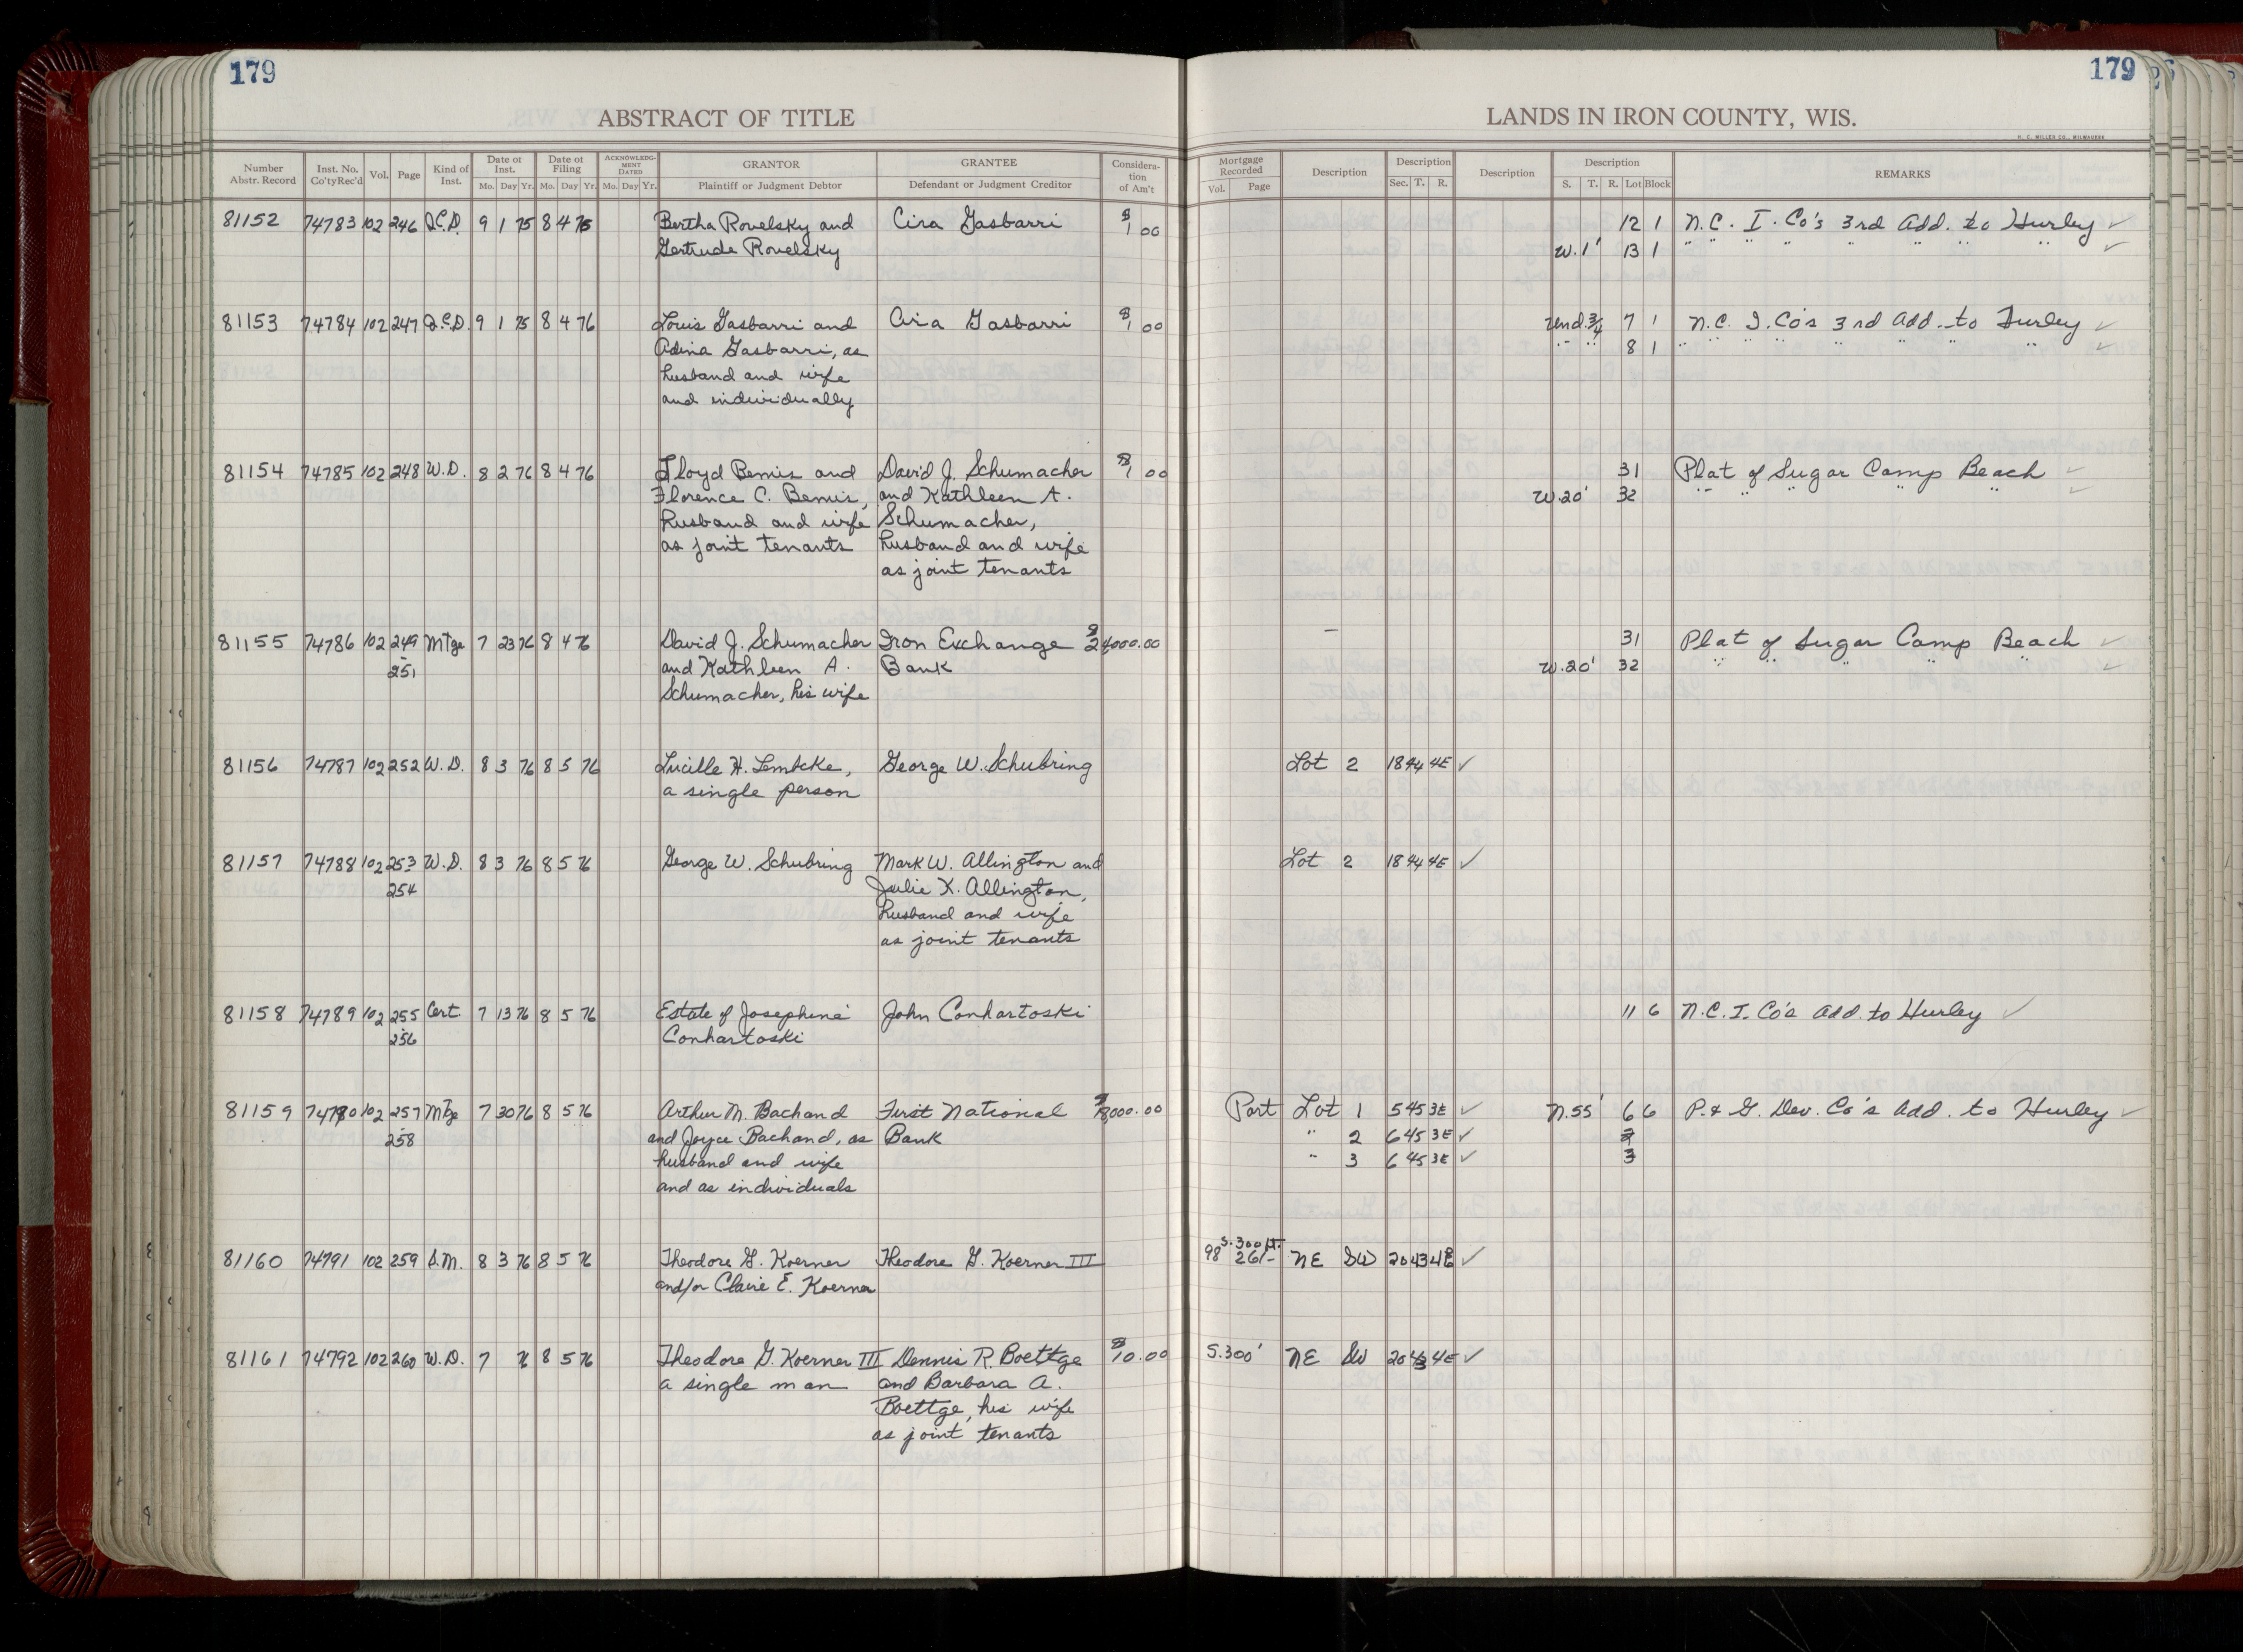 179
179
ABSTRACT OF TITLE
LANDS IN IRON COUNTY, WIS.
H. C. MILLER CO., MILWAUKEE
Number Abstr. Record Inst. No. Co'ty Rec'd Vol. Page Kind of Inst. Date of Inst. Mo. Day Yr. Date of Filing Mo. Day Yr. ACKNOWLEDGMENT DATED Mo. Day Yr. GRANTOR Plaintiff or Judgment Debtor GRANTEE Defendant or Judgment Creditor Consideration of Am't Mortgage Recorded Vol. Page Description Description Sec. T. R. Description Description S. T. R. Lot Block REMARKS
81152 74783 102 246 Q.C.D. 9 1 75 8 4 76 Bertha Rovelsky and Cira Gasbarri $1 00 12 1 N.C. I. Co's 3rd Add. to Hurley ✓
Gertrude Rovelsky W. 1' 13 1 " " " " " " " " ✓
81153 74784 102 247 Q.C.D. 9 1 75 8 4 76 Louis Gasbarri and Cira Gasbarri $1 00 Und. 3/4 7 1 N.C. I. Co's 3rd Add. to Hurley ✓
Adina Gasbarri, as " " 8 1 " " " " " " " " ✓
husband and wife
and individually
81154 74785 102 248 W.D. 8 2 76 8 4 76 Floyd Bemis and David J. Schumacher $1 00 31 Plat of Sugar Camp Beach ✓
Florence C. Bemis, and Kathleen A. W. 20' 32 " " " " " ✓
husband and wife Schumacher,
as joint tenants husband and wife
as joint tenants
81155 74786 102 249 Mtge 7 23 76 8 4 76 David J. Schumacher Iron Exchange $24,000.00 – 31 Plat of Sugar Camp Beach ✓
- 251 and Kathleen A. Bank W. 20' 32 " " " " " ✓
Schumacher, his wife
81156 74787 102 252 W.D. 8 3 76 8 5 76 Lucille H. Lembcke, George W. Schubring Lot 2 18 44 4E ✓
a single person
81157 74788 102 253 W.D. 8 3 76 8 5 76 George W. Schubring Mark W. Allington and Lot 2 18 44 4E ✓
254 Julie K. Allington,
husband and wife
as joint tenants
81158 74789 102 255 Cert 7 13 76 8 5 76 Estate of Josephine John Conhartoski 11 6 N.C. I. Co's Add. to Hurley ✓
- 256 Conhartoski
81159 74790 102 257 Mtge 7 30 76 8 5 76 Arthur M. Bachand First National $8,000.00 Part Lot 1 5 45 3E ✓ N. 55' 6 6 P. & G. Dev. Co's Add. to Hurley ✓
- 258 and Joyce Bachand, as Bank " 2 6 45 3E ✓
husband and wife " 3 6 45 3E ✓
and as individuals
81160 74791 102 259 S.M. 8 3 76 8 5 76 Theodore G. Koerner Theodore G. Koerner III 98 261- S. 300 ft. NE SW 20 43 4E ✓
and/or Claire E. Koerner
81161 74792 102 260 W.D. 7 76 8 5 76 Theodore G. Koerner III Dennis R. Boettge $10.00 S. 300' NE SW 20 43 4E ✓
a single man and Barbara A.
Boettge, his wife
as joint tenants